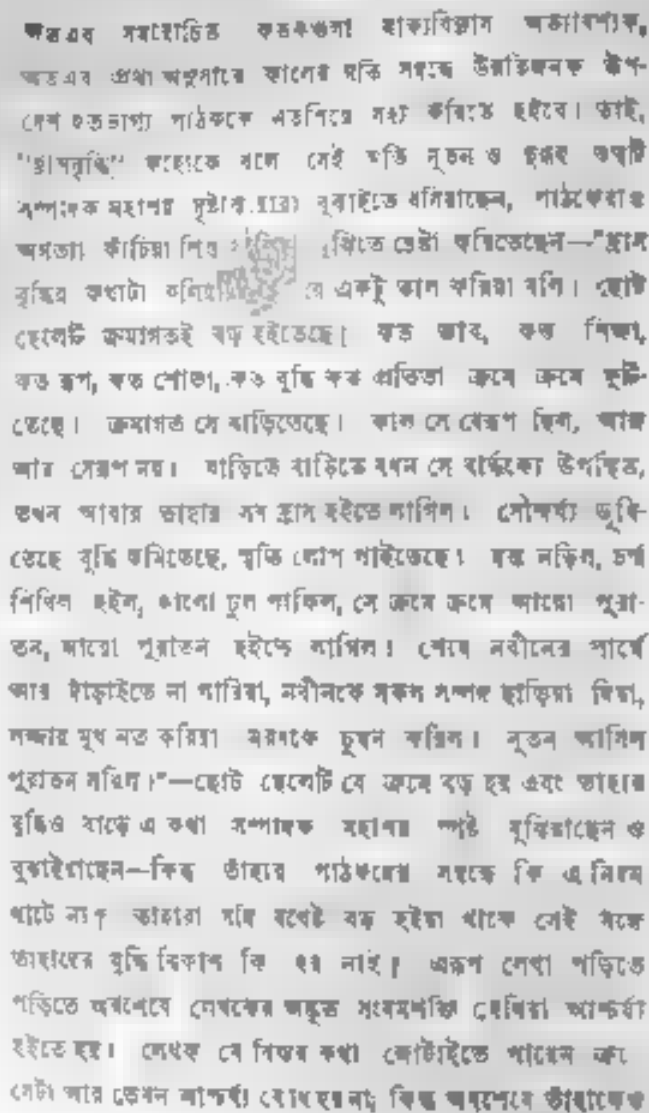 অতএব সময়োচিত কতকগুলা বাক্যবিন্যাস অত্যাবশ্যক,
অতএব প্রথা অনুসারে কালের গতি সম্বন্ধে উন্নতিজনক উপ-
দেশ হতভাগ্য পাঠককে নতশিরে সহ্য করিতে হইবে। তাই,
"হ্রাসবৃদ্ধি" কাহাকে বলে সেই অতি নূতন ও দুরূহ তত্ত্বটি
সম্পাদক মহাশয় দৃষ্টান্ত দ্বারা বুঝাইতে বসিয়াছেন, পাঠকেরাও
অগত্যা কাঁচিয়া শিশু বুঝিতে চেষ্টা করিতেছেন—"হ্রাস
বৃদ্ধির কথাটা একটু ভাল করিয়া বলি। ছোট
ছেলেটি ক্রমাগতই বড় হইতেছে। কত ভাব, কত শিক্ষা,
কত রূপ, কত শোভা, কত বুদ্ধি কত প্রতিভা ক্রমে ক্রমে ফুটি-
তেছে। ক্রমাগত সে বাড়িতেছে। কাল সে যেরূপ ছিল, আজ
আর সেরূপ নয়। বাড়িতে বাড়িতে যখন সে বার্দ্ধক্যে উপস্থিত,
তখন আবার তাহার সব হ্রাস হইতে লাগিল। সৌন্দর্য্য ডুবি-
তেছে বুদ্ধি কমিতেছে, স্মৃতি লোপ পাইতেছে। দন্ত নড়িল, চর্ম্ম
শিথিল হইল, কালো চুল পাকিল, সে ক্রমে ক্রমে আরো পুরা-
তন, আরো পুরাতন হইতে লাগিল। শেষে নবীনের পার্শ্বে
আর দাঁড়াইতে না পারিয়া, নবীনকে সকল সম্পদ ছাড়িয়া দিয়া,
লজ্জায় মুখ নত করিয়া মরণকে চুম্বন করিল। নূতন আসিল
পুরাতন সরিল।"—ছোট ছেলেটি যে ক্রমে বড় হয় এবং তাহার
বুদ্ধিও বাড়ে এ কথা সম্পাদক মহাশয় স্পষ্ট বুঝিয়াছেন ও
বুঝাইয়াছেন—কিন্তু তাঁহার পাঠকদের সম্বন্ধে কি এ নিয়ম
খাটে না? তাহারা যদি যথেষ্ট বড় হইয়া থাকে সেই সঙ্গে
তাহাদের বুদ্ধি বিকাশ কি হয় নাই? এরূপ লেখা পড়িতে
পড়িতে অবশেষে লেখকের অদ্ভুত সংযমশক্তি দেখিয়া আশ্চর্য্য
হইতে হয়। লেখক যে বিস্তর কথা জোটাইতে পারেন
সেটা আর তেমন আশ্চর্য্য বোধ হয় না; কিন্তু অবশেষে তাঁহাকেও